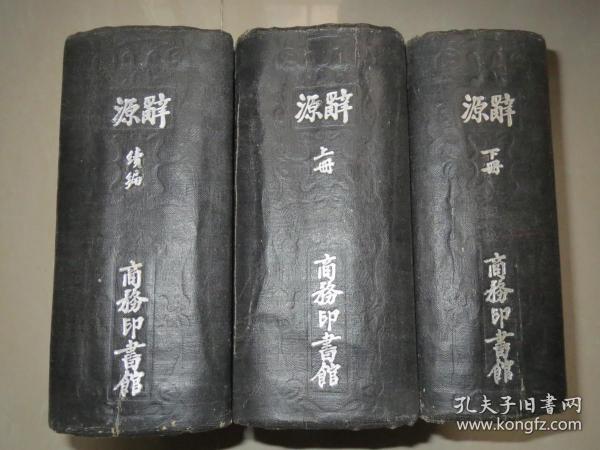 源辭
續編
商務印書館
源辭
上冊
商務印書館
源辭
下冊
商務印書館
孔夫子旧書网
www.kongfz.com